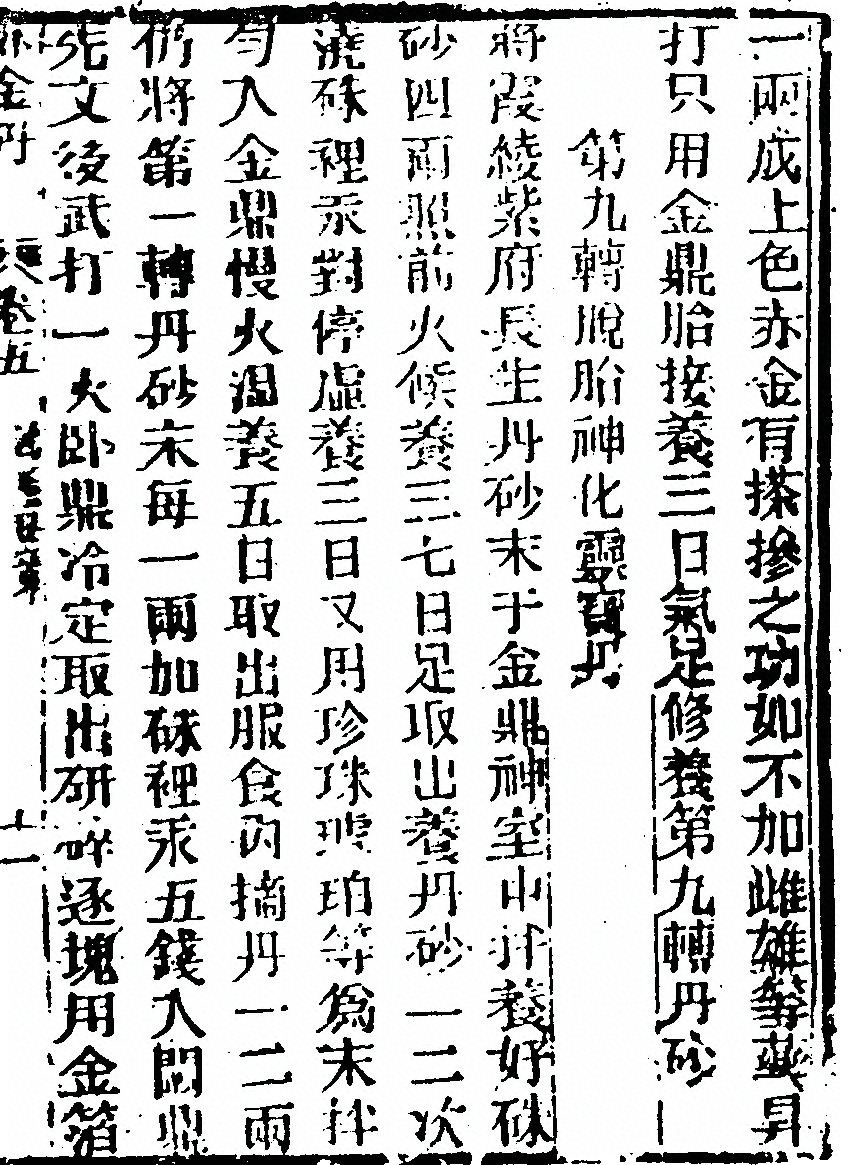 一兩成上色赤金有搽摻之功如不加雌雄等藥昇
打只用金鼎胎接養三日氣足修養第九轉丹砂
第九轉脫胎神化靈寶丹
將霞綾紫府長生丹砂末于金鼎神室中拌養好硃
砂四兩照前火候養三七日足取出養丹砂一二次
澆硃裡汞對停虛養三日又用珍珠琥珀等為末拌
勻入金鼎慢火溫養五日取出服食內摘丹一二兩
仍將第一轉丹砂末每一兩加硃裡汞五錢入悶鼎
先文後武打一火卧鼎冷定取出研碎逐塊用金箔
金丹 卷五 十一